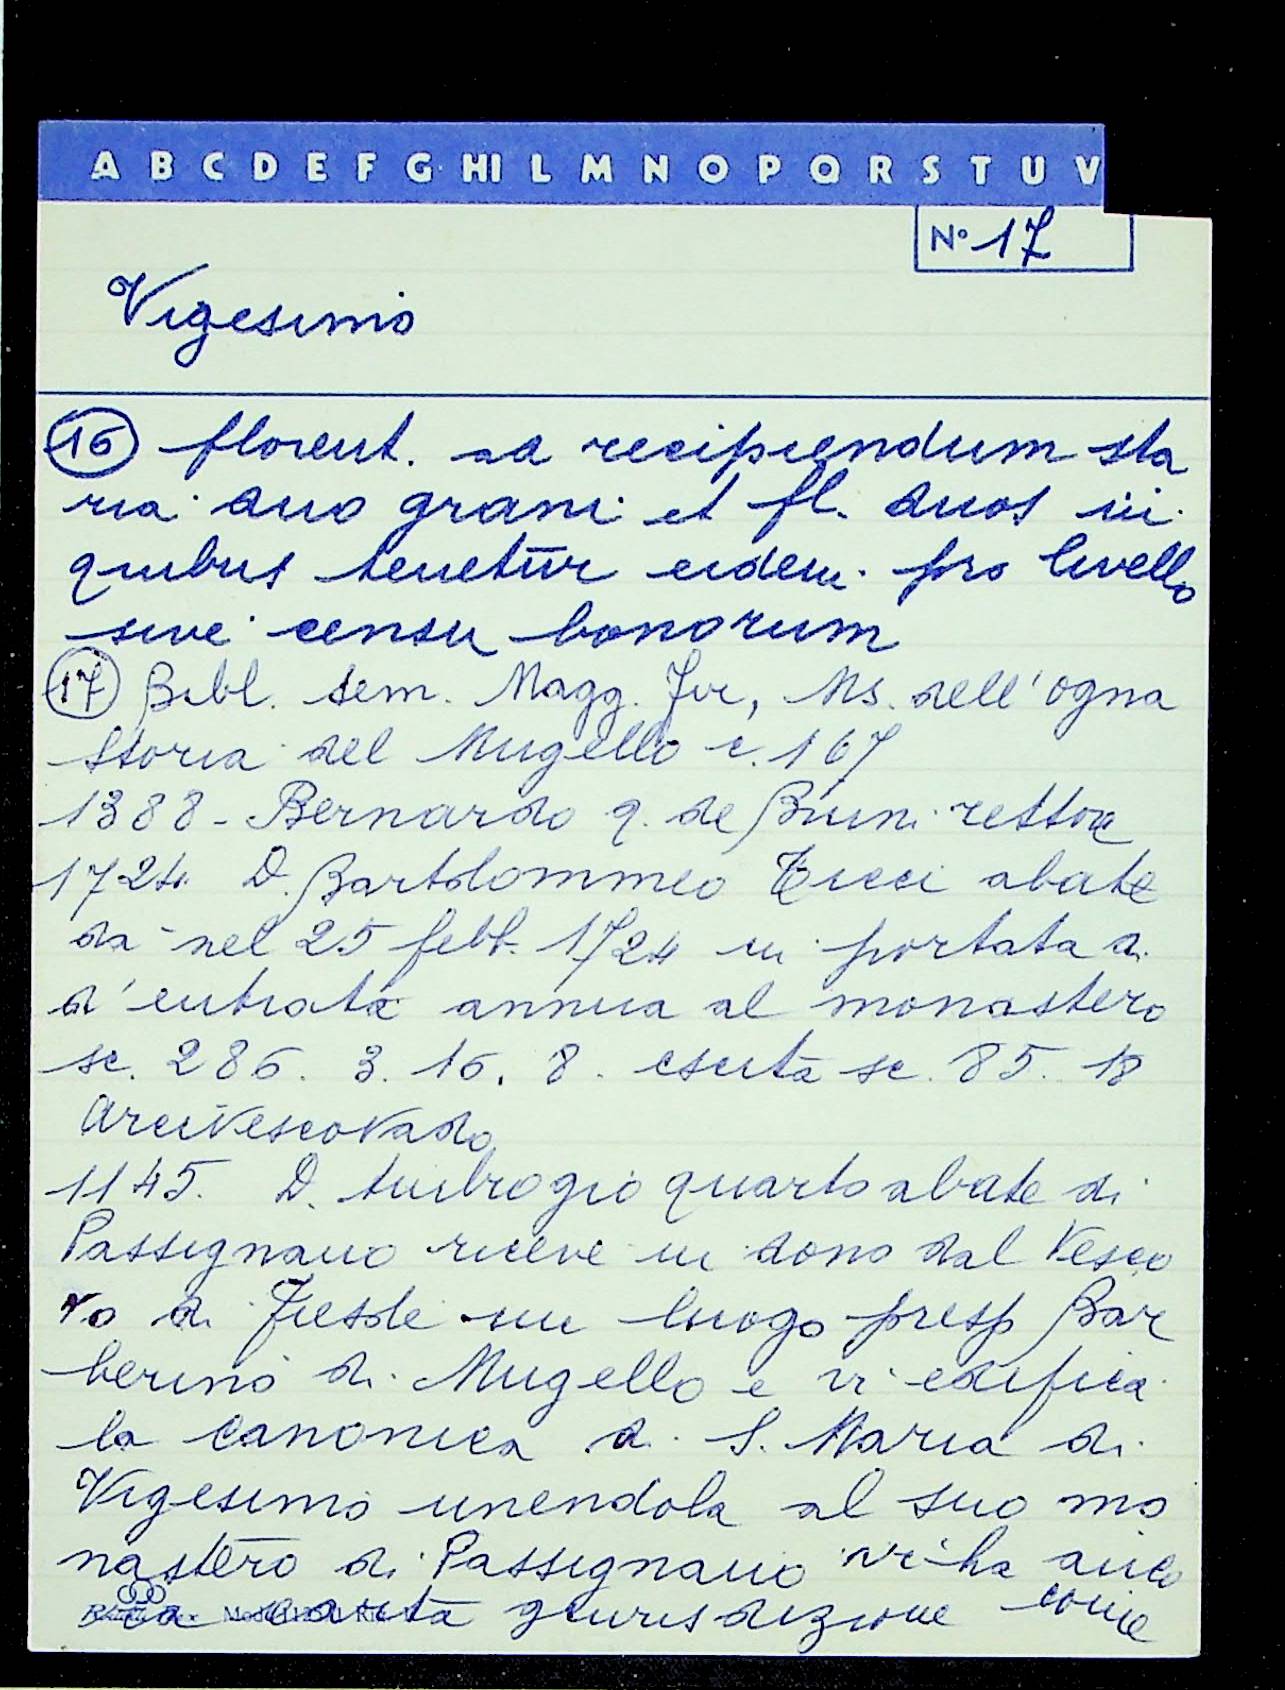 A B C D E F G HI L M N O P Q R S T U V
N° 17
Vigesimo
16 florent. ad recipiendum sta
ria duo grani et fl. duos in
quibus tenetur eidem pro livello
sive censu bonorum
17 Bibl. Sem. Magg. Fir, Ms. dell'Ogna
Storia del Mugello c. 167
1388 - Bernardo q. de Bruni rettore
1724. D. Bartolommeo abate
da nel 25 febb. 1724 in portata di
d'entrata annua al monastero
sc. 286. 3. 16. 8. escita sc. 85. 18
Arcivescovado
1145. D. Ambrogio quarto abate di
Passignano riceve in dono dal Vesco
vo di Fiesole un luogo presso Bar
berino di Mugello e vi edifica
la canonica di S. Maria di
Vigesimo unendola al suo mo
nastero di Passignano vi ha anco
ra giurisdizione come